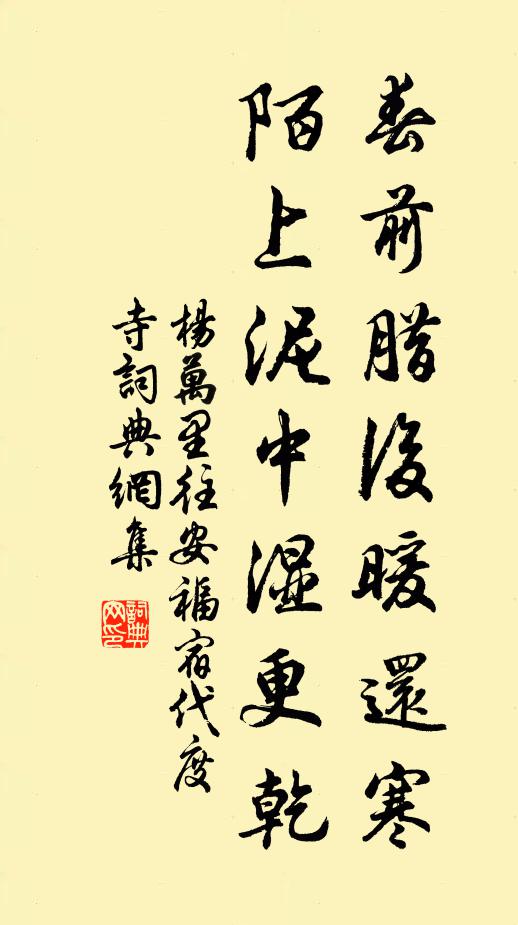 春前腊後暖還寒
陌上泥中湿更乾
楊萬里往安福宿代度
寺詞典網集
詞典
网印